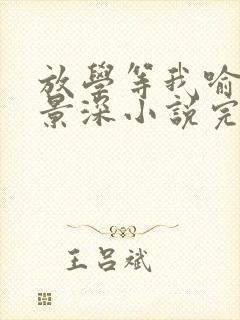 放學等我喻
景深小說完
王呂斌